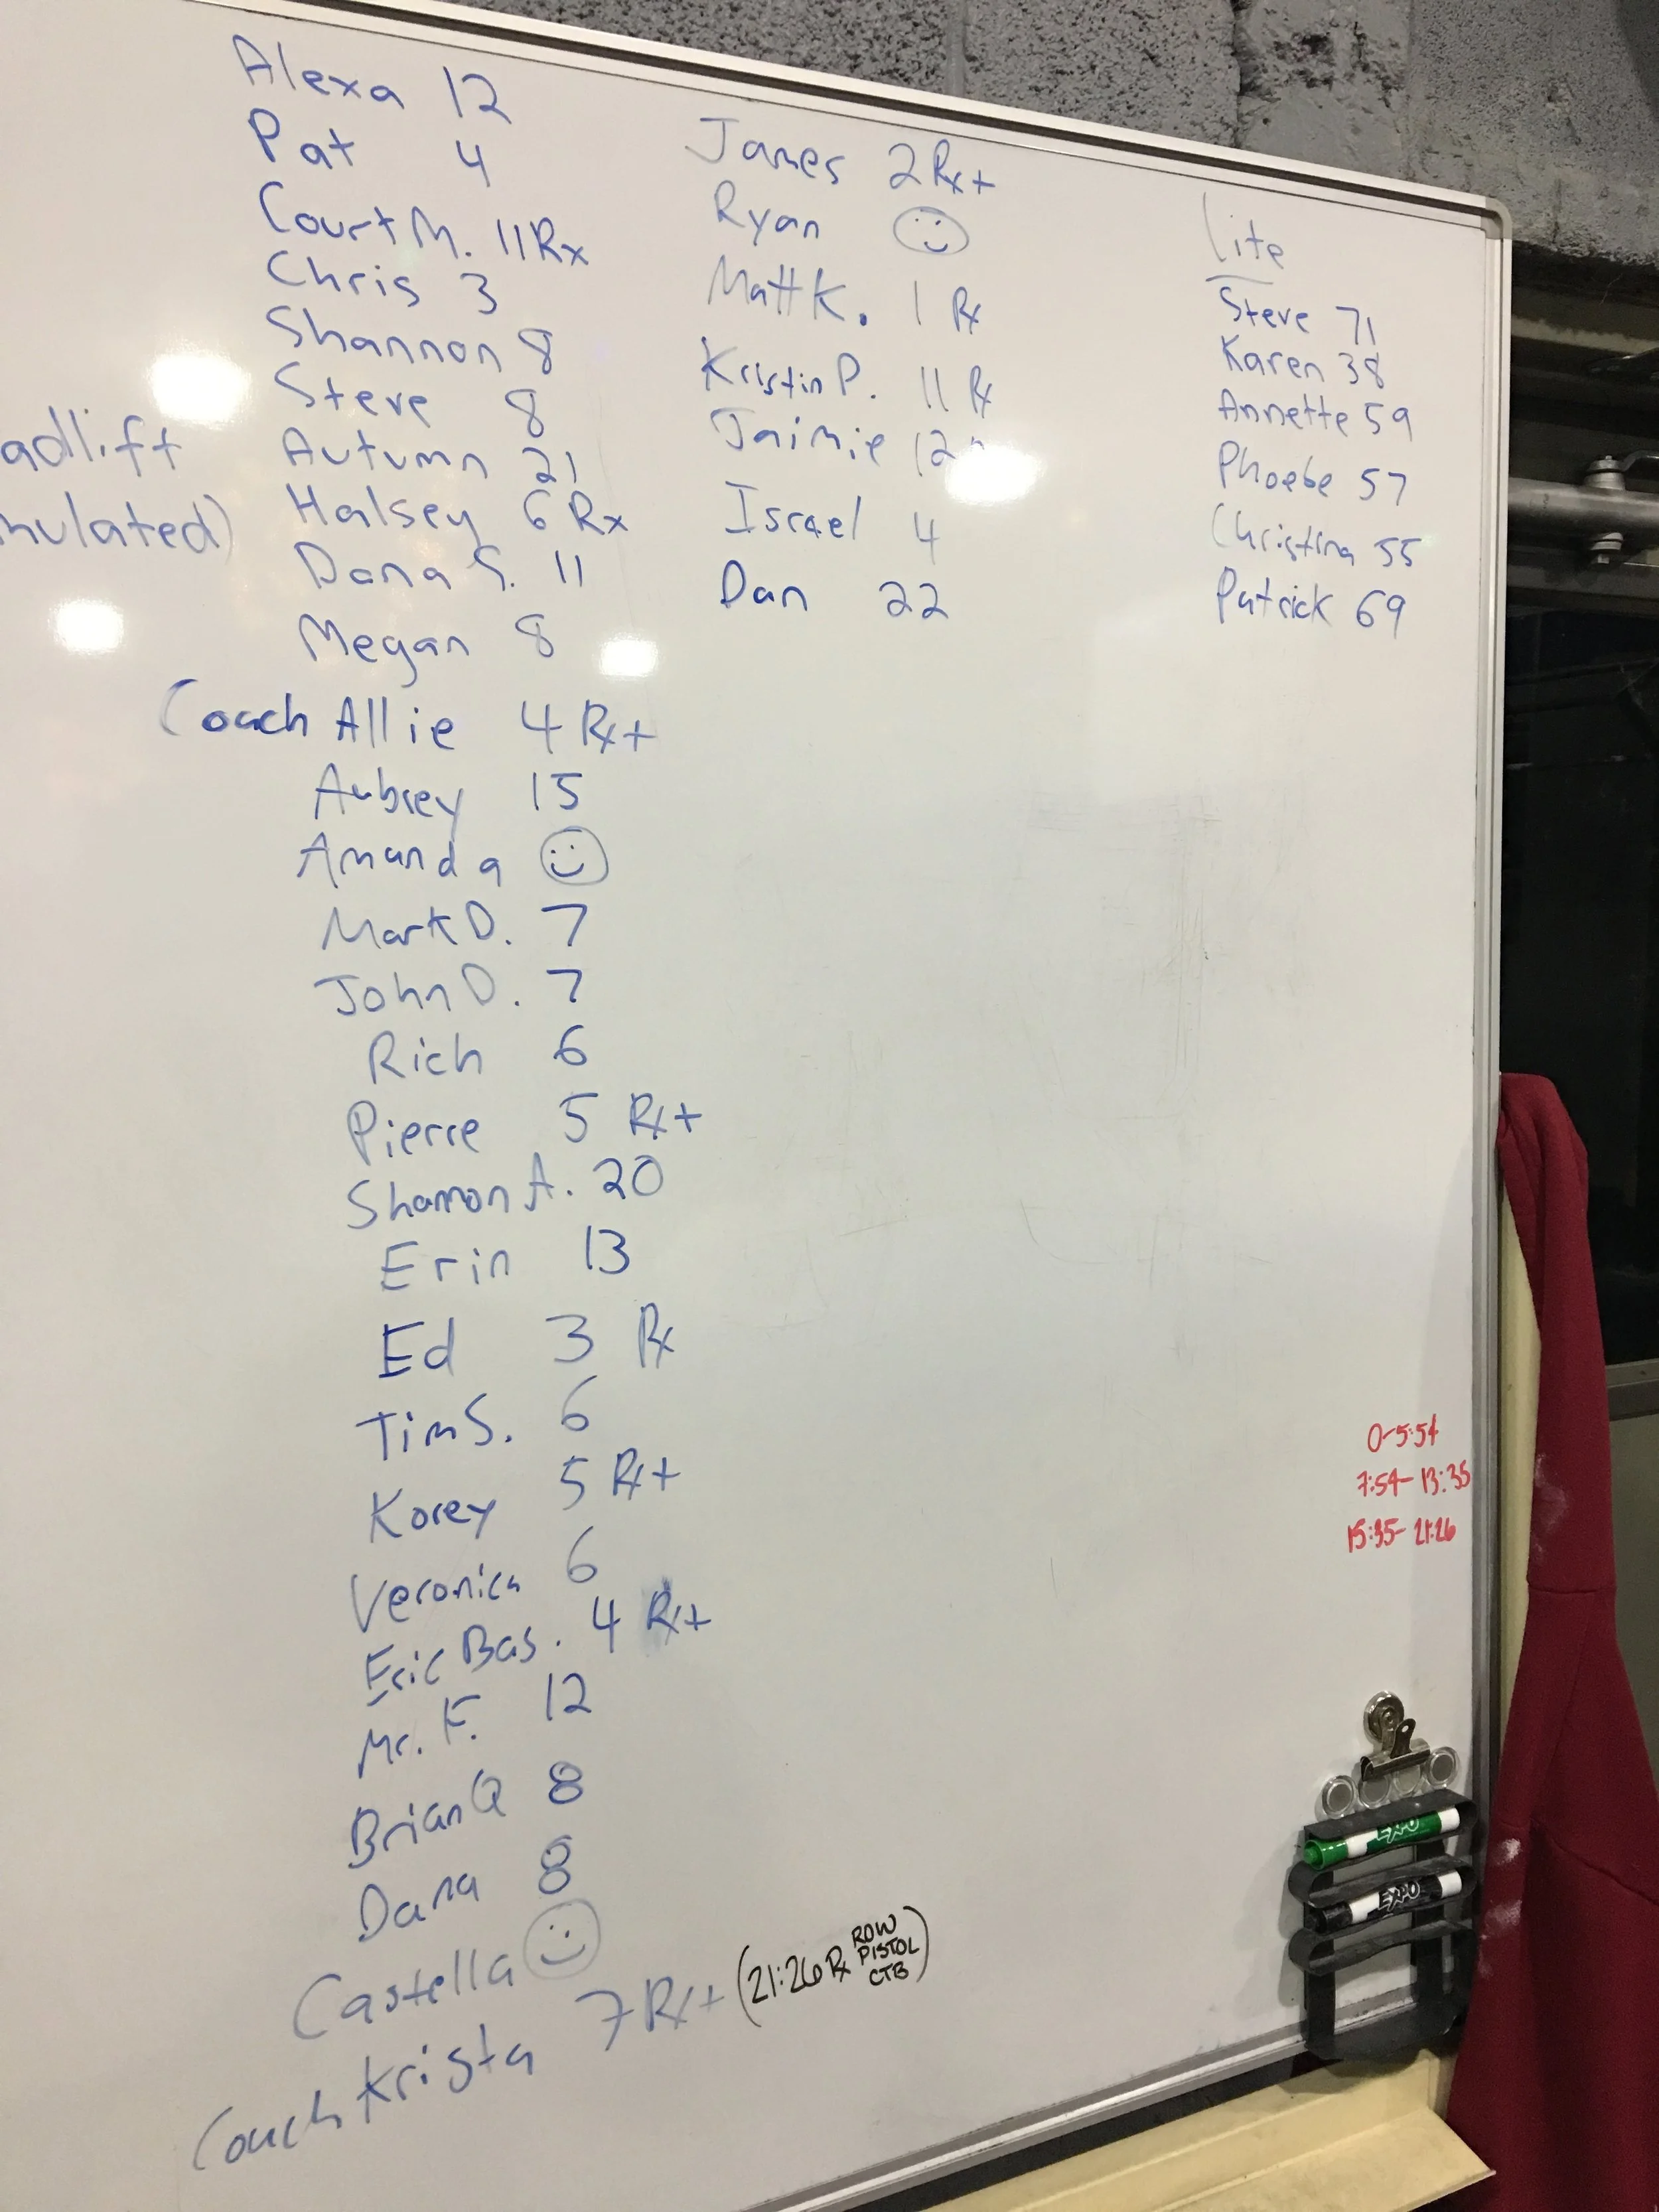 Alexa 12
Pat 4
Court M. 11 Rx
Chris 3
Shannon 8
Steve 8
Autumn 21
Halsey 6 Rx
Dana S. 11
Megan 8
Coach Allie 4 Rx+
Aubrey 15
Amanda
Mark D. 7
John D. 7
Rich 6
Pierre 5 Rx+
Shannon A. 20
Erin 13
Ed 3 Rx
Tim S. 6
Korey 5 Rx+
Veronica 6
Eric Bas. 4 Rx+
Mr. F. 12
Brian Q 8
Dana 8
Castella
Coach Krista 7 Rx+ (21:26 Rx ROW
PISTOL
CTB)
adlift
mulated)
James 2 Rx+
Ryan
Matt K. 1 Rx
Kristin P. 11 Rx
Jaimie 12
Israel 4
Dan 22
Lite
Steve 71
Karen 38
Annette 59
Phoebe 57
Christina 55
Patrick 69
0-5:54
7:54-13:35
15:35-21:26
EXPO
EXPO